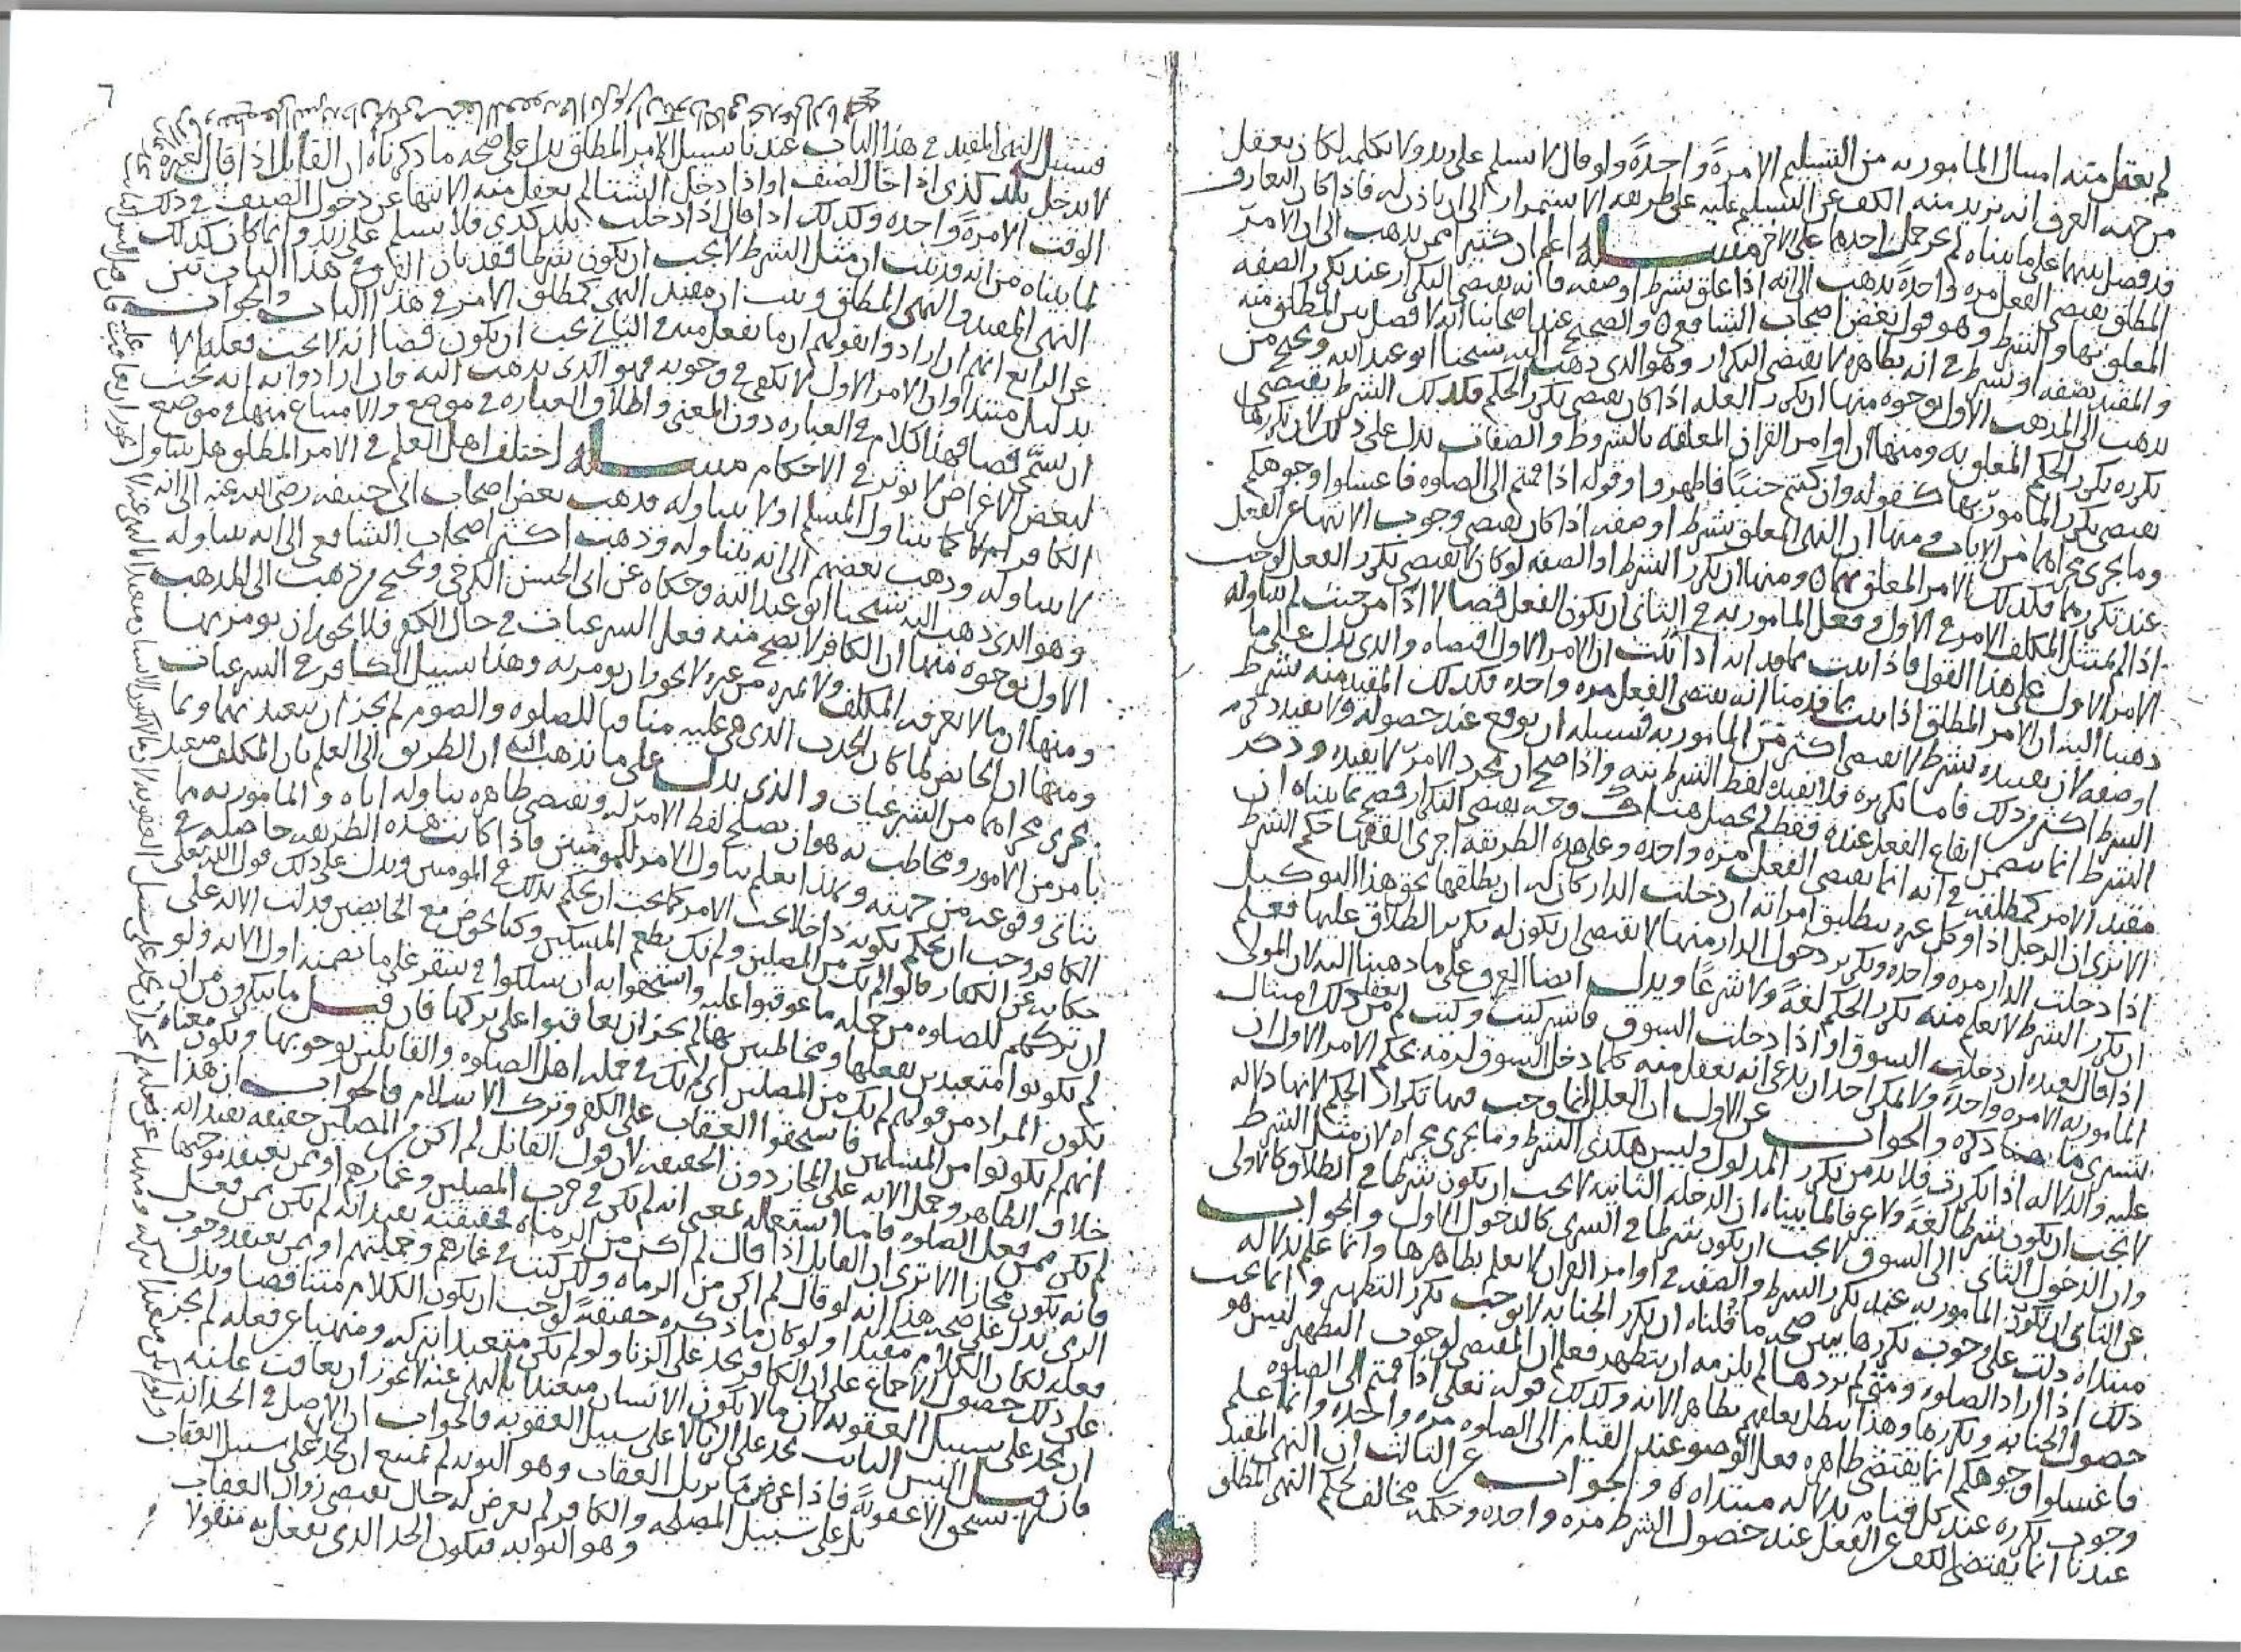 لم يعقل منه امسال المامور به من التسليم الا مرةً واحدةً ولو قال لا تسلم على زيد ولا تكلمه لكان يعقل
من جهه العرف انه يريد منه الكف عن التسليم عليه على طريقه الاستمرار الى ان ياذن له فاذا كان التعارف
قد فصل بينهما على ما بيناه لم يجز حمل احدهما على الاخر مسـله اعلم ان كثيرا ممن يذهب الى ان الامر
المطلق يقتضى الفعل مره واحدةً يذهب الى انه اذا علق بشرط او صفه فانه يقتضى التكرار عند تكرر الصفه
المعلق بها والشرط وهو قول بعض اصحاب الشافعى والصحيح عند اصحابنا انه لا فصل بين المطلق منه
والمقيد بصفه او بشرط فى انه بظاهره لا يقتضى التكرار وهو الذى ذهب اليه شيخنا ابو عبد الله ويحتج من
يذهب الى المذهب الاول بوجوه منها ان تكرر العله اذا كان يقتضى تكرر الحكم فكذلك الشرط يقتضى
تكرره تكرر الحكم المعلق به ومنها ان اوامر القران المعلقه بالشروط والصفات تدل على ذلك لان تكررها
يقتضى تكرر المامور بها كقوله وان كنتم جنبًا فاطهروا وقوله اذا قمتم الى الصلوه فاغسلوا وجوهكم
وما يجرى مجراهما من الايات ومنها ان النهى المعلق بشرط او صفه اذا كان يقتضى وجوب الانتهاء عن الفعل
عند تكررهما فكذلك الامر المعلق بهما ومنها ان تكرر الشرط او الصفه لو كان لا يقتضى تكرر الفعل لوجب
اذا لم يمتثل المكلف الامر فى الاول وفعل المامور به فى الثانى ان يكون الفعل قضا لا اداً من حيث لم يتناوله
الامر الاول على هذا القول فاذا ثبت بما قد انه ادا ثبت ان الامر الاول اقتضاه والذى يدل على ما
ذهبنا اليه ان الامر المطلق اذا ثبت بما قدمنا انه يقتضى الفعل مره واحده فكذلك المقيد منه بشرط
او صفه لان تقييده بشرط لا يقتضى اكثر من المامور به فسبيله ان يوقع عند حصوله ولا يفيد ذكر
الشرط اكثر من ذلك فاما تكرره فلا يفيده لفظ الشرط بته واذا صح ان مجرد الامر لا يفيده وذكر
الشرط انما يتضمن ايقاع الفعل عنده فقط لم يحصل هناك وجه يقتضى التكرار فصح بما بيناه ان
مقيد الامر كمطلقه فى انه انما يقتضى الفعل مره واحده وعلى هذه الطريقه اجرى الفقها حكم الشرط
الا ترى ان الرجل اذا وكل غيره بتطليق امراته ان دخلت الدار كان له ان يطلقها بحق هذا التوكيل
اذا دخلت الدار مره واحده وتكرر دخول الدار منها لا يقتضى ان يكون له تكرير الطلاق عليها فعلم
ان تكرر الشرط لا يعلم منه تكرر الحكم لغةً ولا شرعًا ويدل ايضا العرف على ما ذهبنا اليه لان المولى
اذا قال لعبده ان دخلت السوق او اذا دخلت السوق فاشتر كيت وكيت لم يعقل من ذلك امتثال
المامور به الا مره واحدةً ولا يمكن احدا ان يدعى انه يعقل منه كلما دخل السوق لزمه بحكم الامر الاول ان
يشترى ما ذكره والجواب عن الاول ان العلل انما وجب فيها تكرار الحكم لانها دلاله
عليه والدلاله اذا تكررت فلا بد من تكرر المدلول وليس هكذى الشرط وما يجرى مجراه لان مثل الشرط
لا يجب ان يكون شرطا لغةً ولا عرفا لما بيناه ان الدخله الثانيه لا يجب ان يكون شرطا فى الطلاق كالاولى
وان الدخول الثانى الى السوق لا يجب ان يكون شرطا فى الشرى كالدخول الاول والجواب
عن الثانى ان تكون المامور به عند تكرر الشرط والصفه فى اوامر القران لا يعلم بظاهرها وانما علم بدلاله
مبتداه دلت على وجوب تكررها يبين صحه ما قلناه ان تكرر الجنابه لا يوجب تكرر التطهير وانما يجب
ذلك اذا اراد الصلوه ومتى لم يردها لم يلزمه ان يتطهر فعلم ان المقتضى لوجوب التطهير ليس هو
حصول الجنابه وتكررها وهذا يبطل تعلقهم بظاهر الايه وكذلك قوله تعالى اذا قمتم الى الصلوه
فاغسلوا وجوهكم انما يقتضى ظاهره فعل الوضو عند القيام الى الصلوه مره واحده وانما علم
وجوب تكرره عند كل قيام بدلاله مبتداه والجواب عن الثالث ان النهى المقيد
عندنا انما يقتضى الكف عن الفعل عند حصول الشرط مره واحده وحكمه مخالف لحكم النهى المطلق
فسبيل النهى المقيد فى هذا الباب عندنا سبيل الامر المطلق يدل على صحه ما ذكرناه ان القايل اذا قال لغيره
لا تدخل بلد كذى اذا جا الصيف او اذا دخل الشتا لم يعقل منه الا الانتها عن دخول الصيف فى ذلك
الوقت الا مرةً واحده وكذلك اذا قال اذا دخلت بلد كذى فلا تسلم على زيد وانما كان كذلك
لما بيناه من انه قد ثبت ان مثل الشرط لا يجب ان يكون شرطا فقد بان الفرق فى هذا الباب بين
النهى المقيد والنهى المطلق وثبت ان مقيد النهى كمطلق الامر فى هذا الباب والجواب
عن الرابع انهم ان ارادوا بقولهم ان ما يفعل منه فى الثانى يجب ان يكون قضا انه لا يجب فعله الا
بدليل مبتدا وان الامر الاول لا يكفى فى وجوبه فهو الذى يذهب اليه وان ارادوا به انه يجب
ان يسمى قضا فهذا كلام فى العباره دون المعنى واطلاق العباره فى موضع والامتناع منها فى موضع
لبعض الاغراض لا يوثر فى الاحكام مسـله اختلف اهل العلم فى الامر المطلق هل يتناول
الكافر كما يتناول المسلم او لا يتناوله فذهب بعض اصحاب ابى حنيفه رضى الله عنه الى انه
لا يتناوله وذهب بعضهم الى انه يتناوله وذهب اكثر اصحاب الشافعى الى انه يتناوله
وهو الذى ذهب اليه شيخنا ابو عبد الله وحكاه عن ابى الحسن الكرخى ويحتج من ذهب الى المذهب
الاول بوجوه منها ان الكافر لا يصح منه فعل الشرعيات فى حال الكفر فلا يجوز ان يومر بها
ومنها ان ما لا يعرفه المكلف ولا يميزه من غيره لا يجوز ان يومر به وهذا سبيل الكافر فى الشرعيات
ومنها ان الحايض لما كان الحدث الذى هى عليه منافيا للصلوه والصوم لم يجز ان تتعبد بهما وبما
يجرى مجراهما من الشرعيات والذى يدل على ما نذهب اليه ان الطريق الى العلم بان المكلف متعبد
بامر من الامور ومخاطب به هو ان يصلح لفظ الامر له ويقتضى ظاهره تناوله اياه والمامور به مما
يتاتى وقوعه من جهته وبهذا يعلم تناول الامر للمومنين فاذا كانت هذه الطريقه حاصله فى
الكافر وجب ان يحكم بكونه داخلا تحت الامر كما يجب ان يحكم بذلك فى المومنين ويدل على ذلك قول الله تعلى
حكايه عن الكفار قالوا لم نك من المصلين ولم نك نطعم المسكين وكنا نخوض مع الخايضين فدلت الايه على
ان تركهم للصلوه من جمله ما عوقبوا عليه واستحقوا به ان يسلكوا فى سقر على ما تضمنه اول الايه ولو
لم يكونوا متعبدين بفعلها ومخاطبين بها لم يجز ان يعاقبوا على تركها فان قيل ما تنكرون من ان
يكون المراد من قولهم لم نك من المصلين اى لم نك فى جمله اهل الصلوه والقايلين بوجوبها ويكون معناه
انهم لم يكونوا من المسلمين فاستحقوا العقاب على الكفر وترك الاسلام فالجواب ان هذا
خلاف الظاهر وحمل الايه على المجاز دون الحقيقه لان قول القايل لم اكن من المصلين حقيقه يفيد انه
لم يكن ممن فعل الصلوه فاما استعماله بمعنى انه لم يكن فى حزب المصلين وغمارهم او ممن يعتقد وجوبها
فانه يكون مجازا الا ترى ان القايل اذا قال لم اكن من الرماه فحقيقته يفيد انه لم يكن ممن فعل
الرمى يدل على صحه هذا انه لو قال لم اكن من الرماه ولكن كنت فى غمارهم وجملتهم او ممن يعتقد وجوب
فعله لكان الكلام مفيدا ولو كان ما ذكره حقيقةً لوجب ان يكون الكلام متناقضا ويدل
على ذلك حصول الاجماع على ان الكافر يحد على الزنا ولو لم يكن متعبدا بتركه ومنهيا عن فعله لم يجز
ان يحد على سبيل العقوبه لان ما لا يكون الانسان متعبدا بالنهى عنه لا يجوز ان يعاقب عليه
فان قيل اليس التايب يحد على الزنا لا على سبيل العقوبه فالجواب ان الاصل فى الحد انه
لا يستحق الا عقوبةً فاذا عرض ما يزيل العقاب وهو التوبه لم يمتنع ان يحد لا على سبيل العقاب
بل على سبيل المصلحه والكافر لم يعرض له حال يقتضى زوال العقاب
وهو التوبه فيكون الحد الذى يفعل به مفعولا